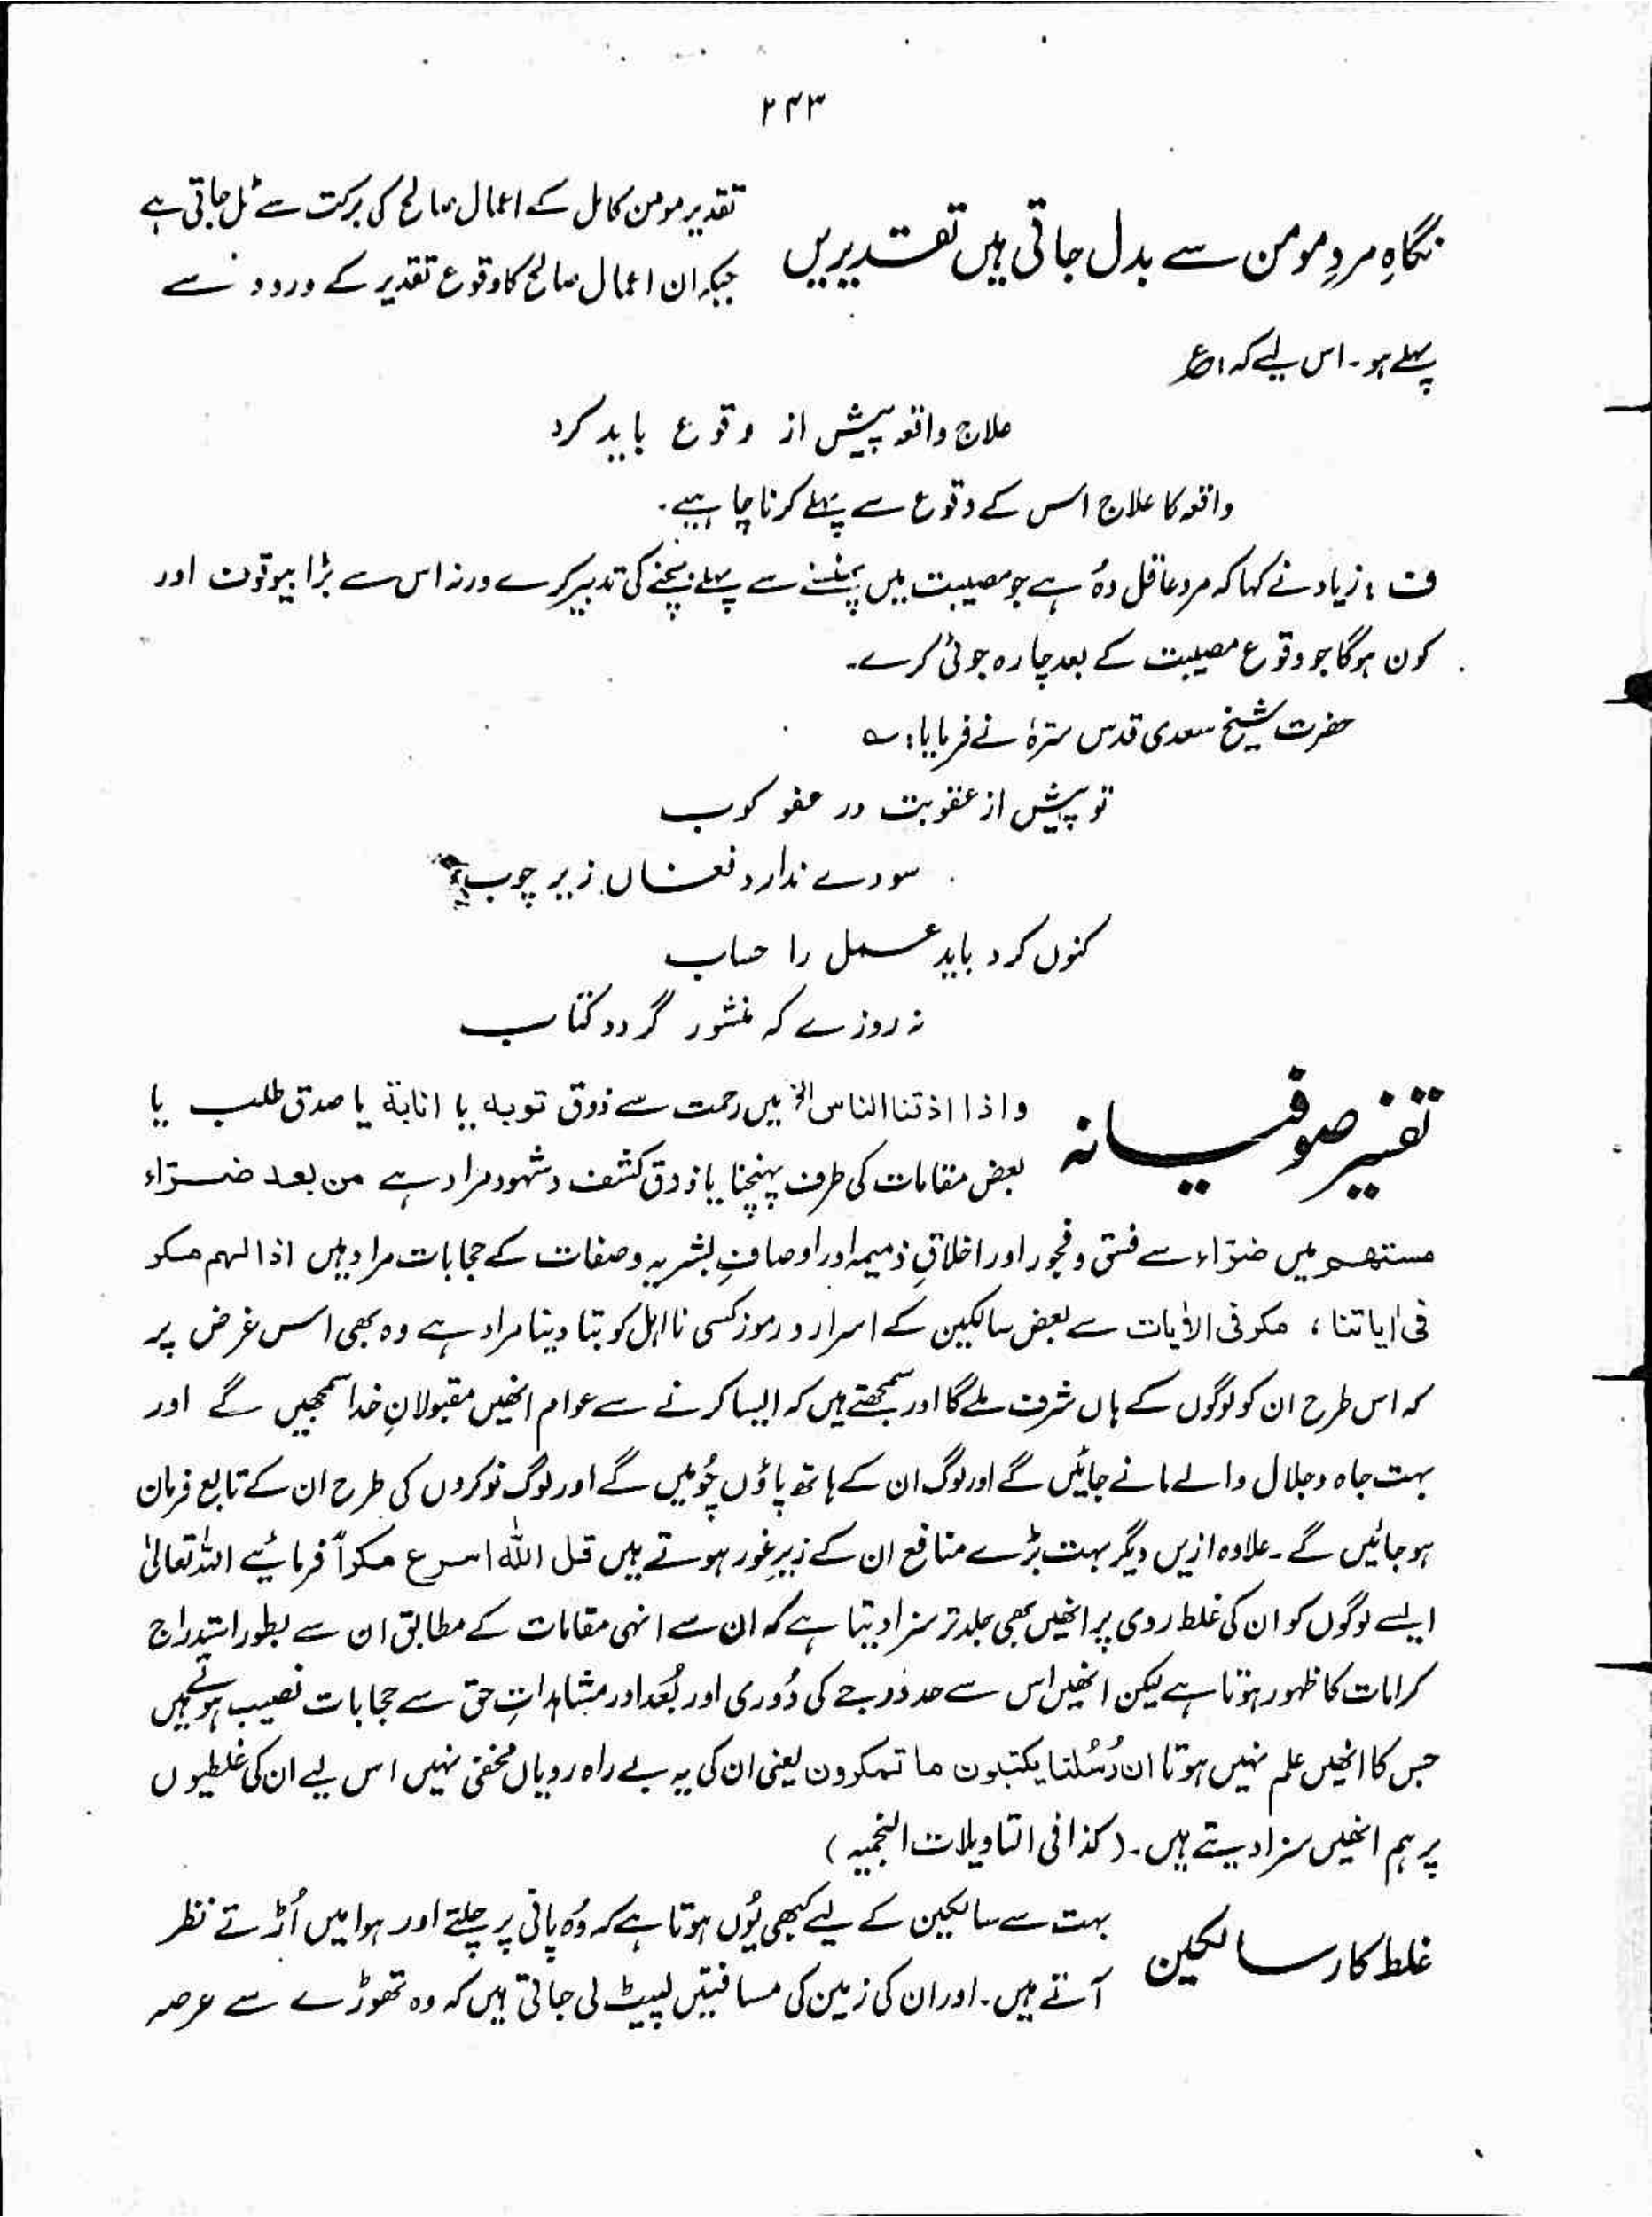 ۲۴۳
نگاہِ مردِ مومن سے بدل جاتی ہیں تقدیریں
تقدیر مومن کامل کے اعمال صالح کی برکت سے ٹل جاتی ہے
جبکہ ان اعمال صالح کا وقوع تقدیر کے ورود سے
پہلے ہو۔ اس لیے کہ: ع
علاج واقعہ پیش از وقوع باید کرد
واقعہ کا علاج اس کے وقوع سے پہلے کرنا چاہیے۔
ف : زیاد نے کہا کہ مرد عاقل وہُ ہے جو مصیبت میں پھنسنے سے پہلے بچنے کی تدبیر کرے ورنہ اس سے بڑا بیوقوف اور
کون ہوگا جو وقوع مصیبت کے بعد چارہ جوئی کرے۔
حضرت شیخ سعدی قدس سرّہٗ نے فرمایا: ؎
تو پیش از عقوبت در عفو کوب
سودے ندارد فغاں زیر چوب
کنوں کرد باید عمل را حساب
نہ روزے کہ منشور گردد کتاب
تفسیر صوفیانہ
واذا اذقنا الناس الخ میں رحمت سے ذوق توبہ یا انابۃ یا صدق طلب یا
بعض مقامات کی طرف پہنچنا یا ذوق کشف و شہود مراد ہے من بعد ضرّاء
مستھم میں ضرّاء سے فسق و فجور اور اخلاقِ ذمیمہ اور اوصافِ بشریہ و صفات کے حجابات مراد ہیں اذا لہم مکر
فی اٰیاتنا ، مکر فی الاٰیات سے بعض سالکین کے اسرار و رموز کسی نااہل کو بتا دینا مراد ہے وہ بھی اس غرض پر
کہ اس طرح ان کو لوگوں کے ہاں شرف ملے گا اور سمجھتے ہیں کہ ایسا کرنے سے عوام انھیں مقبولانِ خدا سمجھیں گے اور
بہت جاہ و جلال والے مانے جائیں گے اور لوگ ان کے ہاتھ پاؤں چُومیں گے اور لوگ نوکروں کی طرح ان کے تابع فرمان
ہو جائیں گے۔ علاوہ ازیں دیگر بہت بڑے منافع ان کے زیرِ غور ہوتے ہیں قل اللّٰہ اسرع مکراً فرمائیے اللہ تعالیٰ
ایسے لوگوں کو ان کی غلط روی پر انھیں بھی جلد تر سزا دیتا ہے کہ ان سے انہی مقامات کے مطابق ان سے بطور استدراج
کرامات کا ظہور ہوتا ہے لیکن انھیں اس سے حد درجے کی دُوری اور بُعد اور مشاہداتِ حق سے حجابات نصیب ہوتے ہیں
جس کا انھیں علم نہیں ہوتا ان رُسُلنا یکتبون ما تمکرون یعنی ان کی یہ بے راہ رویاں مخفی نہیں اس لیے ان کی غلطیوں
پر ہم انھیں سزا دیتے ہیں۔ (کذا فی التاویلات النجمیہ)
غلط کار سالکین
بہت سے سالکین کے لیے کبھی یُوں ہوتا ہے کہ وُہ پانی پر چلتے اور ہوا میں اُڑتے نظر
آتے ہیں۔ اور ان کی زمین کی مسافتیں لپیٹ لی جاتی ہیں کہ وہ تھوڑے سے عرصہ